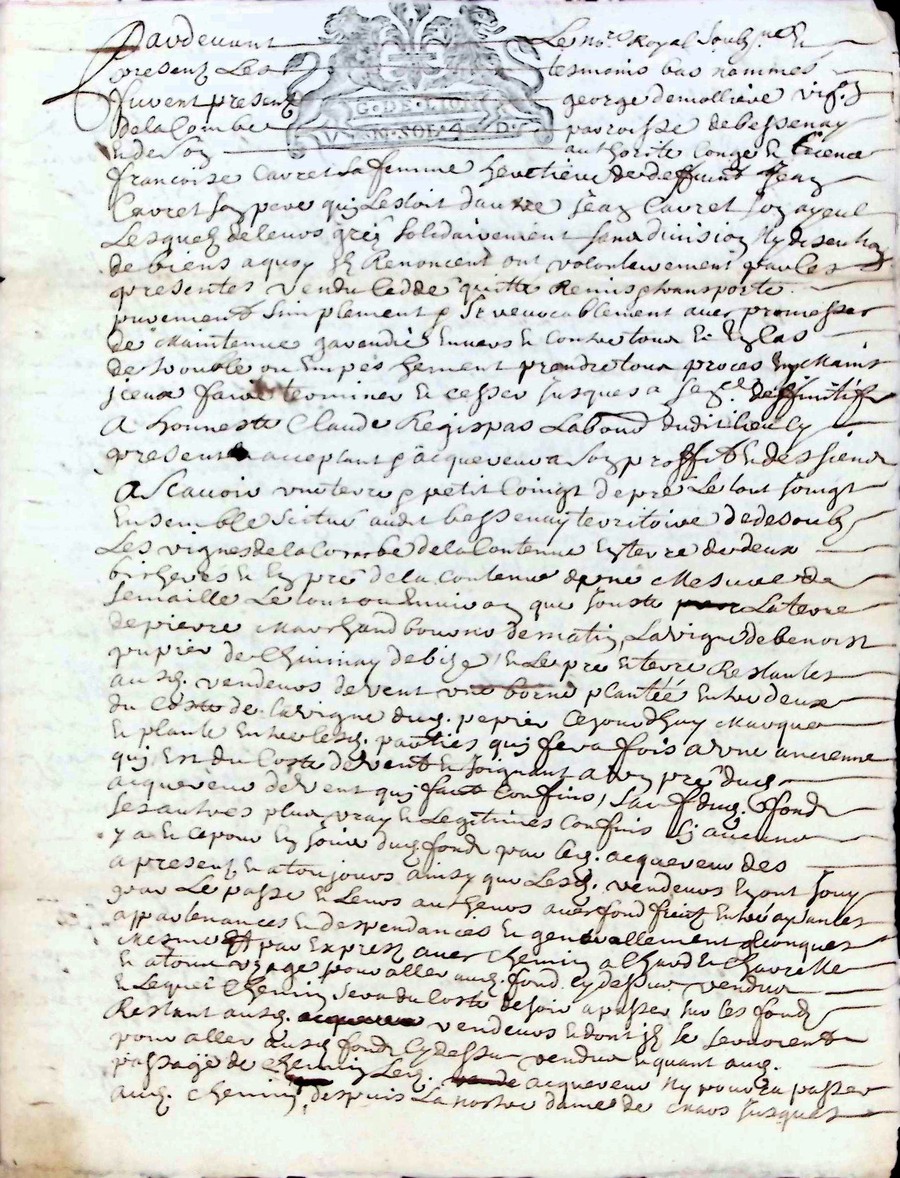 Pardevant Le no.re Royal soubz.ne &
presentz Les tesmoins bas nommes
furent presentz george demolliere vig.
de la Combe parroisse de bessenay
& de son authorite conge & licence
francoise Cavret sa femme heretiere de deffunt Jean
Cavret son pere quy L'estoit d'autre Jean Cavret son ayeul
Lesquelz de leurs gré solidairement sans division ny
de biens a quoy ilz Renoncent ont volontairement par les
presentes vendu cedde quitte Remis & transporte
purement simplement & Irrevocablement avec promesses
de Maintenue garendie Envers & Contre tous
de trouble ou Empeschement prendre tous proces En Mains
jceux faire terminer & cesser Jusques a deffinitifve
A honneste Claude Regispas Laboureur dudit lieu Cy
present acceptant & acquereur a son proffit & des siens
A Scavoir une terre & petit Coingt de pré Le tout Joingt
Ensemble scitue audit bessenay territoire de desoubz
Les vignes de la Combe de la Contenue En terre de deux
bicherés & En pré de la contenue de une Mesure de
semaille Le tout ou Environ que Jouste La terre
de pierre Marchand bourno de matin, La vigne de benoist
pupier de Chinnay de bize, & Le pré & terre Restantes
aus. vendeurs de vent une borne plantée Entre deux
du Costé de la vigne dud. pepier Cejourdhuy Marque
& plante Entre lesd. parties quy fera fois a une ancienne
quy Est du Coste de vent & Joignant a un pré dud.
acquereur de vent quy fait Confins, sauf dud. fond
ses autres plus vray & Legitimes Confins sy aucuns
y a & ce pour En jouir dud. fond par led. acquereur des
a present & a tousjours ainsy que Lesd. vendeurs En ont Jouy
par Le passé & Leurs autheurs avec fond fruitz Entrée
appartenances & despendances & generallement quelconques
Mesmes par Expres avec chemin a Chard & Charrette
& a tout uzage pour aller aud. fond cy dessus vendus
& Lequel Chemin sera du Costé de soir a passer sur les fondz
Restant ausd. vendeurs & dont ilz se serviront
pour aller ausd. fondz Cy dessus vendus & quant aud.
passage de chemin Led. acquereur ny pourra passer
aud. chemin, despuis La nostre dame de Mars Jusques